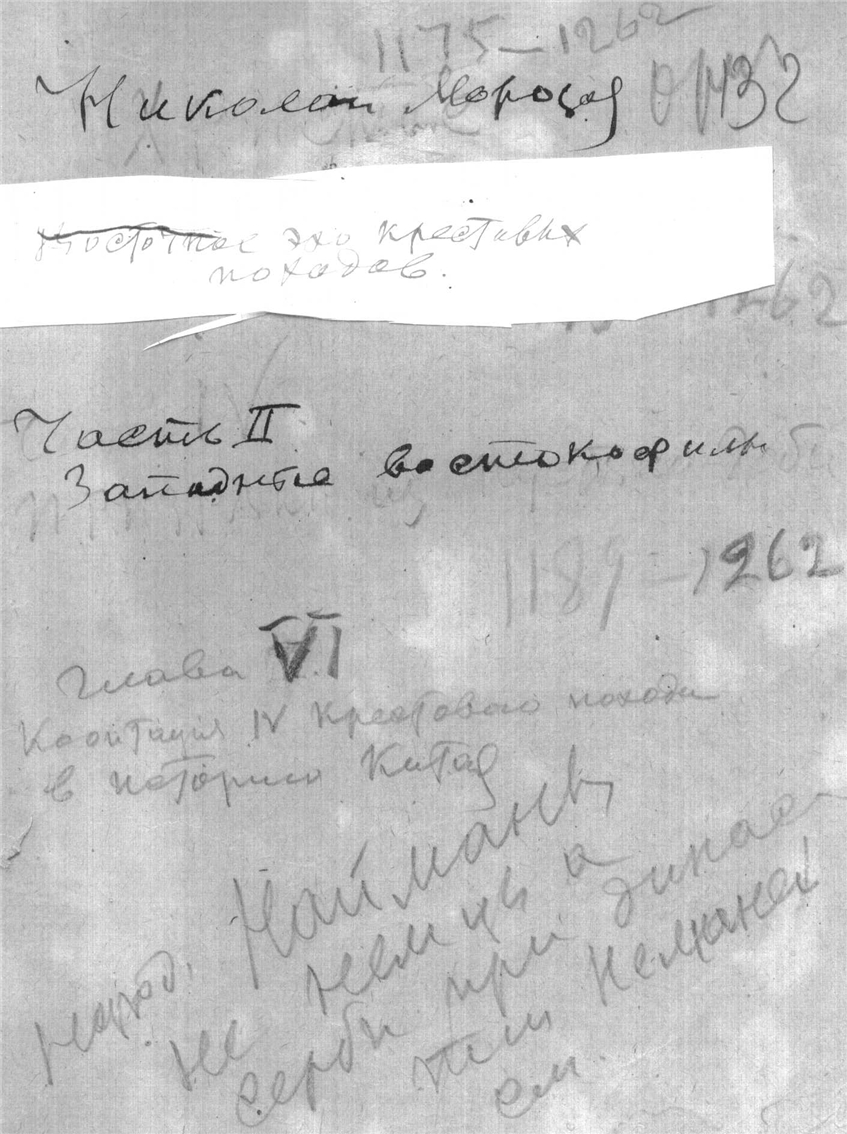 1175–1262
Николай Морозов 0/432
Восточное эхо крестовых
походов.
1262
Часть II
Западные востокофилы
1189–1262
Глава VI
IV Крестового похода
в истории Китая
Народ. Найманы
не немцы а
сербы при династии
Неманей